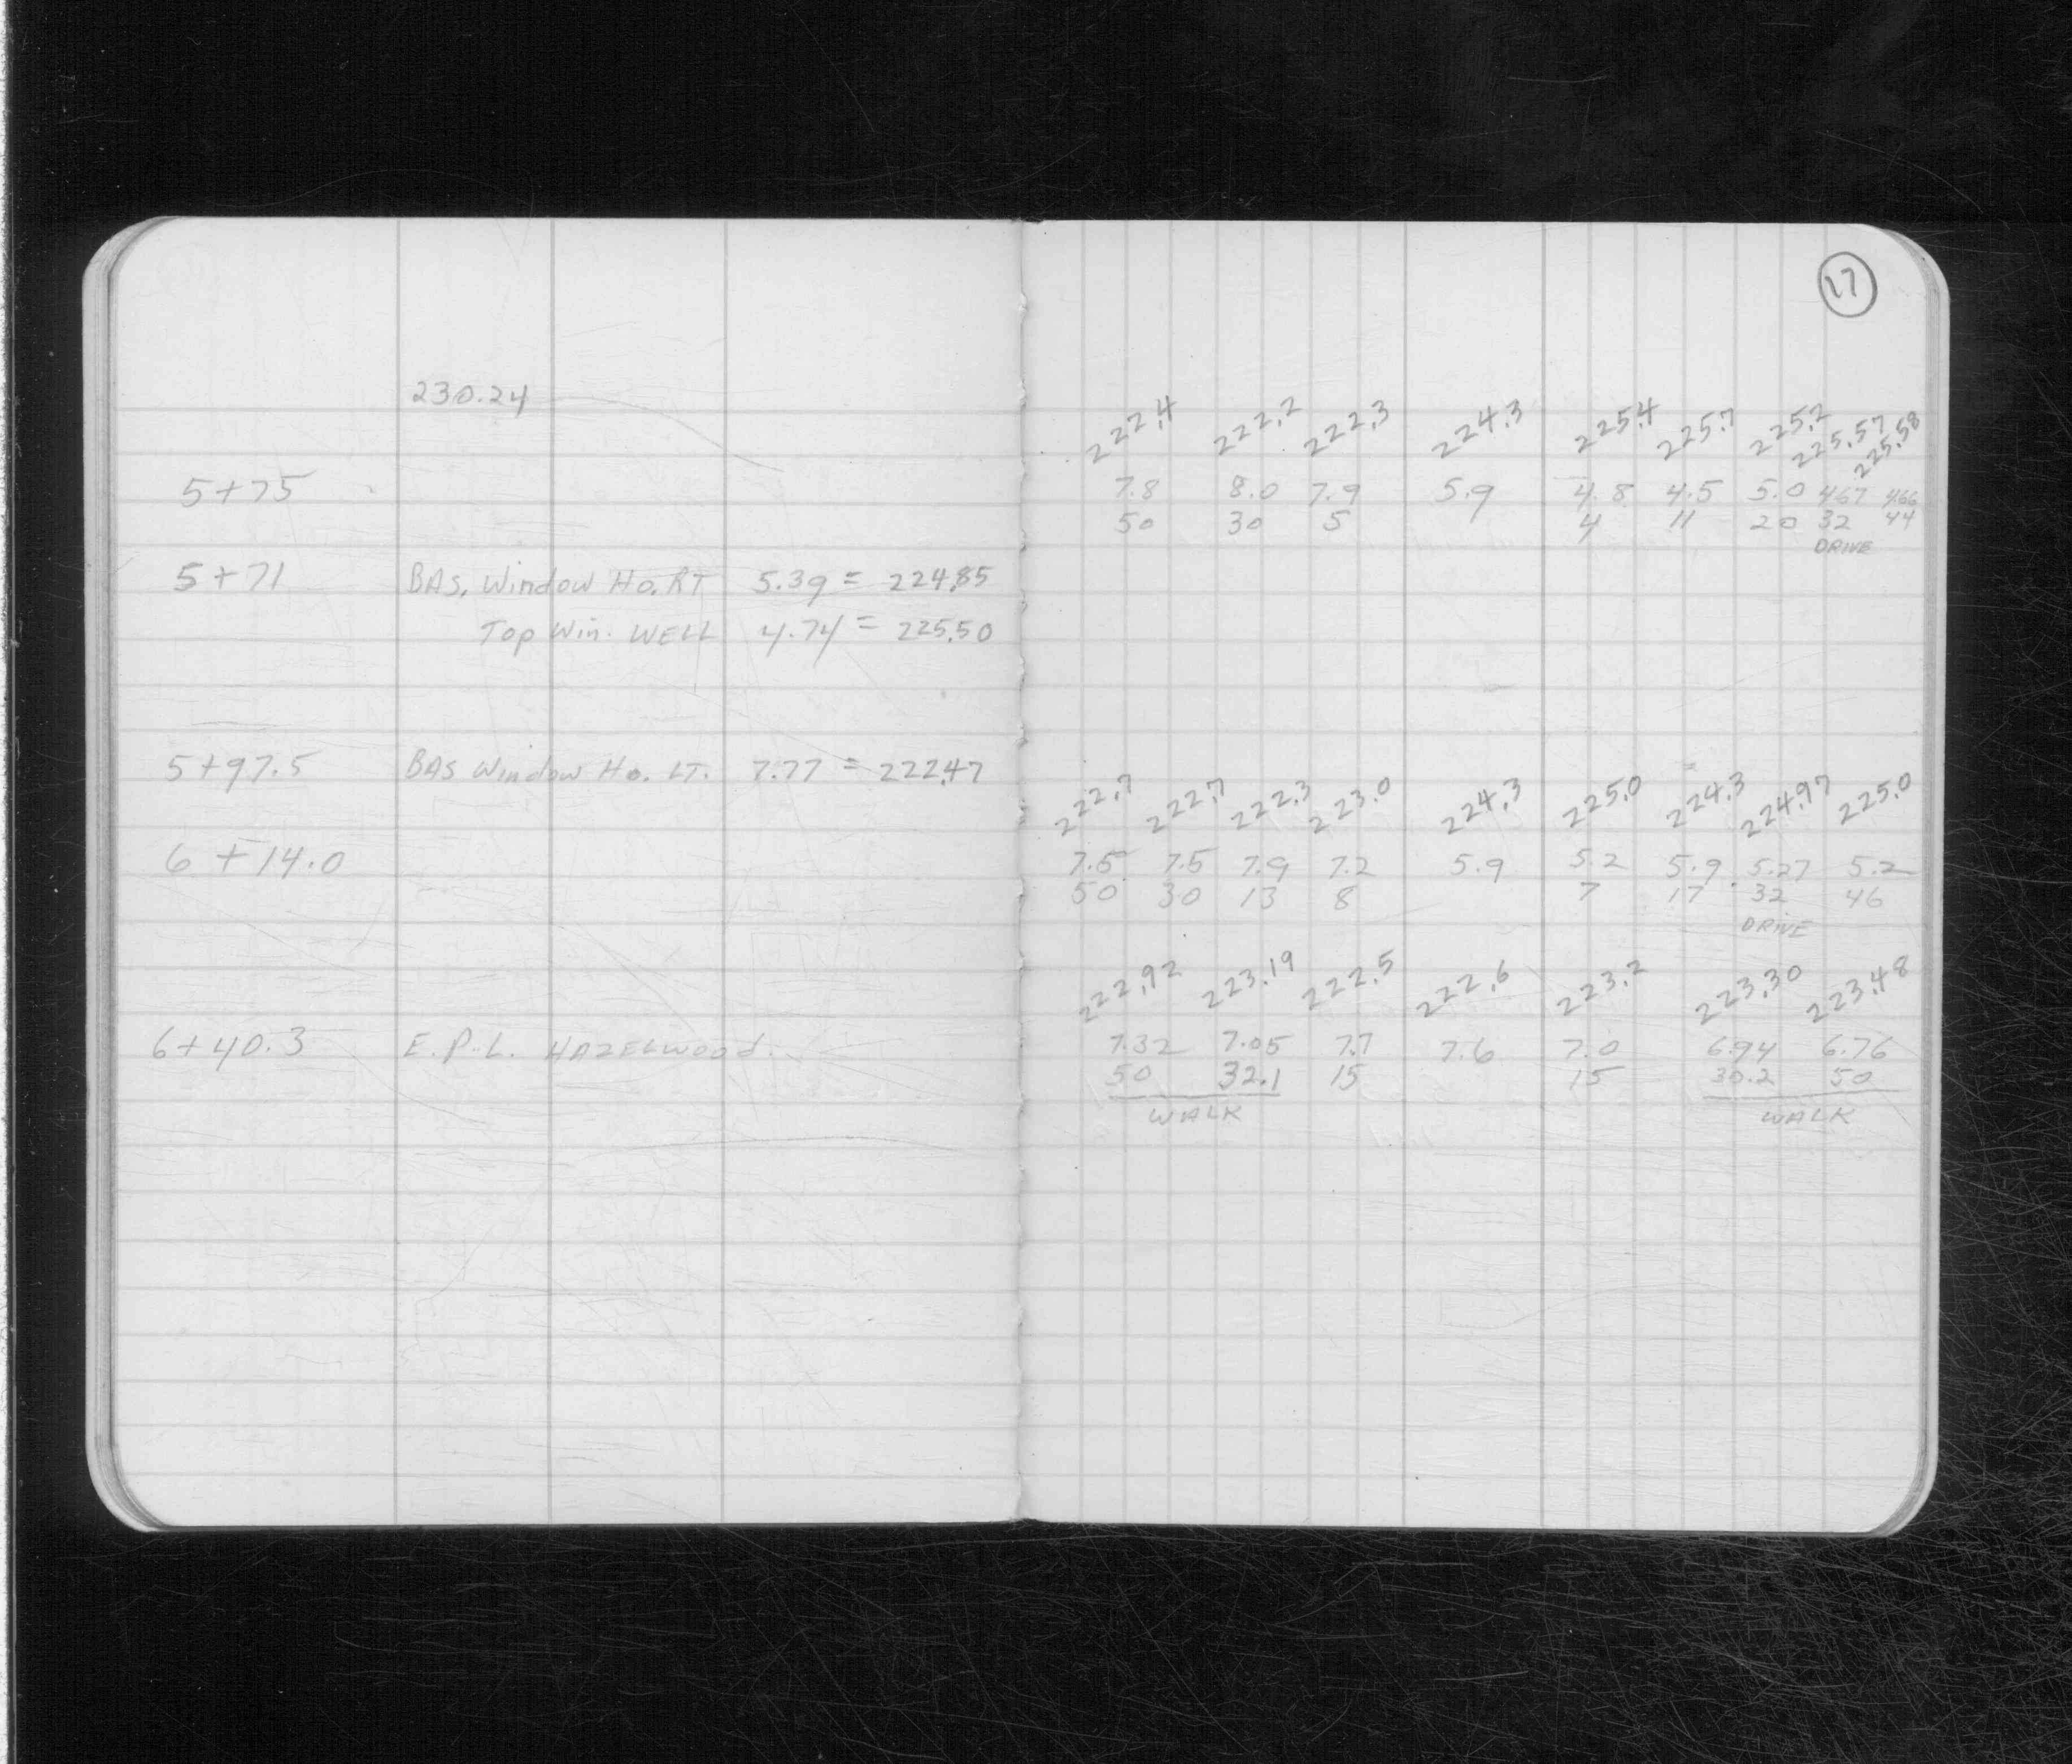 17
230.24
222.4 222.2 222.3 224.3 225.4 225.7 225.2 225.57 225.58
5+75 7.8 8.0 7.9 5.9 4.8 4.5 5.0 4.67 4.66
50 30 5 4 11 20 32 44
DRIVE
5+71 BAS. Window Ho. RT 5.39 = 224.85
Top Win. WELL 4.74 = 225.50
5+97.5 BAS Window Ho. LT. 7.77 = 222.47
222.7 222.7 222.3 223.0 224.3 225.0 224.3 224.97 225.0
6+14.0 7.5 7.5 7.9 7.2 5.9 5.2 5.9 5.27 5.2
50 30 13 8 7 17 32 46
DRIVE
222.92 223.19 222.5 222.6 223.2 223.30 223.48
6+40.3 E.P.L. HAZELWOOD. 7.32 7.05 7.7 7.6 7.0 6.94 6.76
50 32.1 15 15 30.2 50
WALK WALK